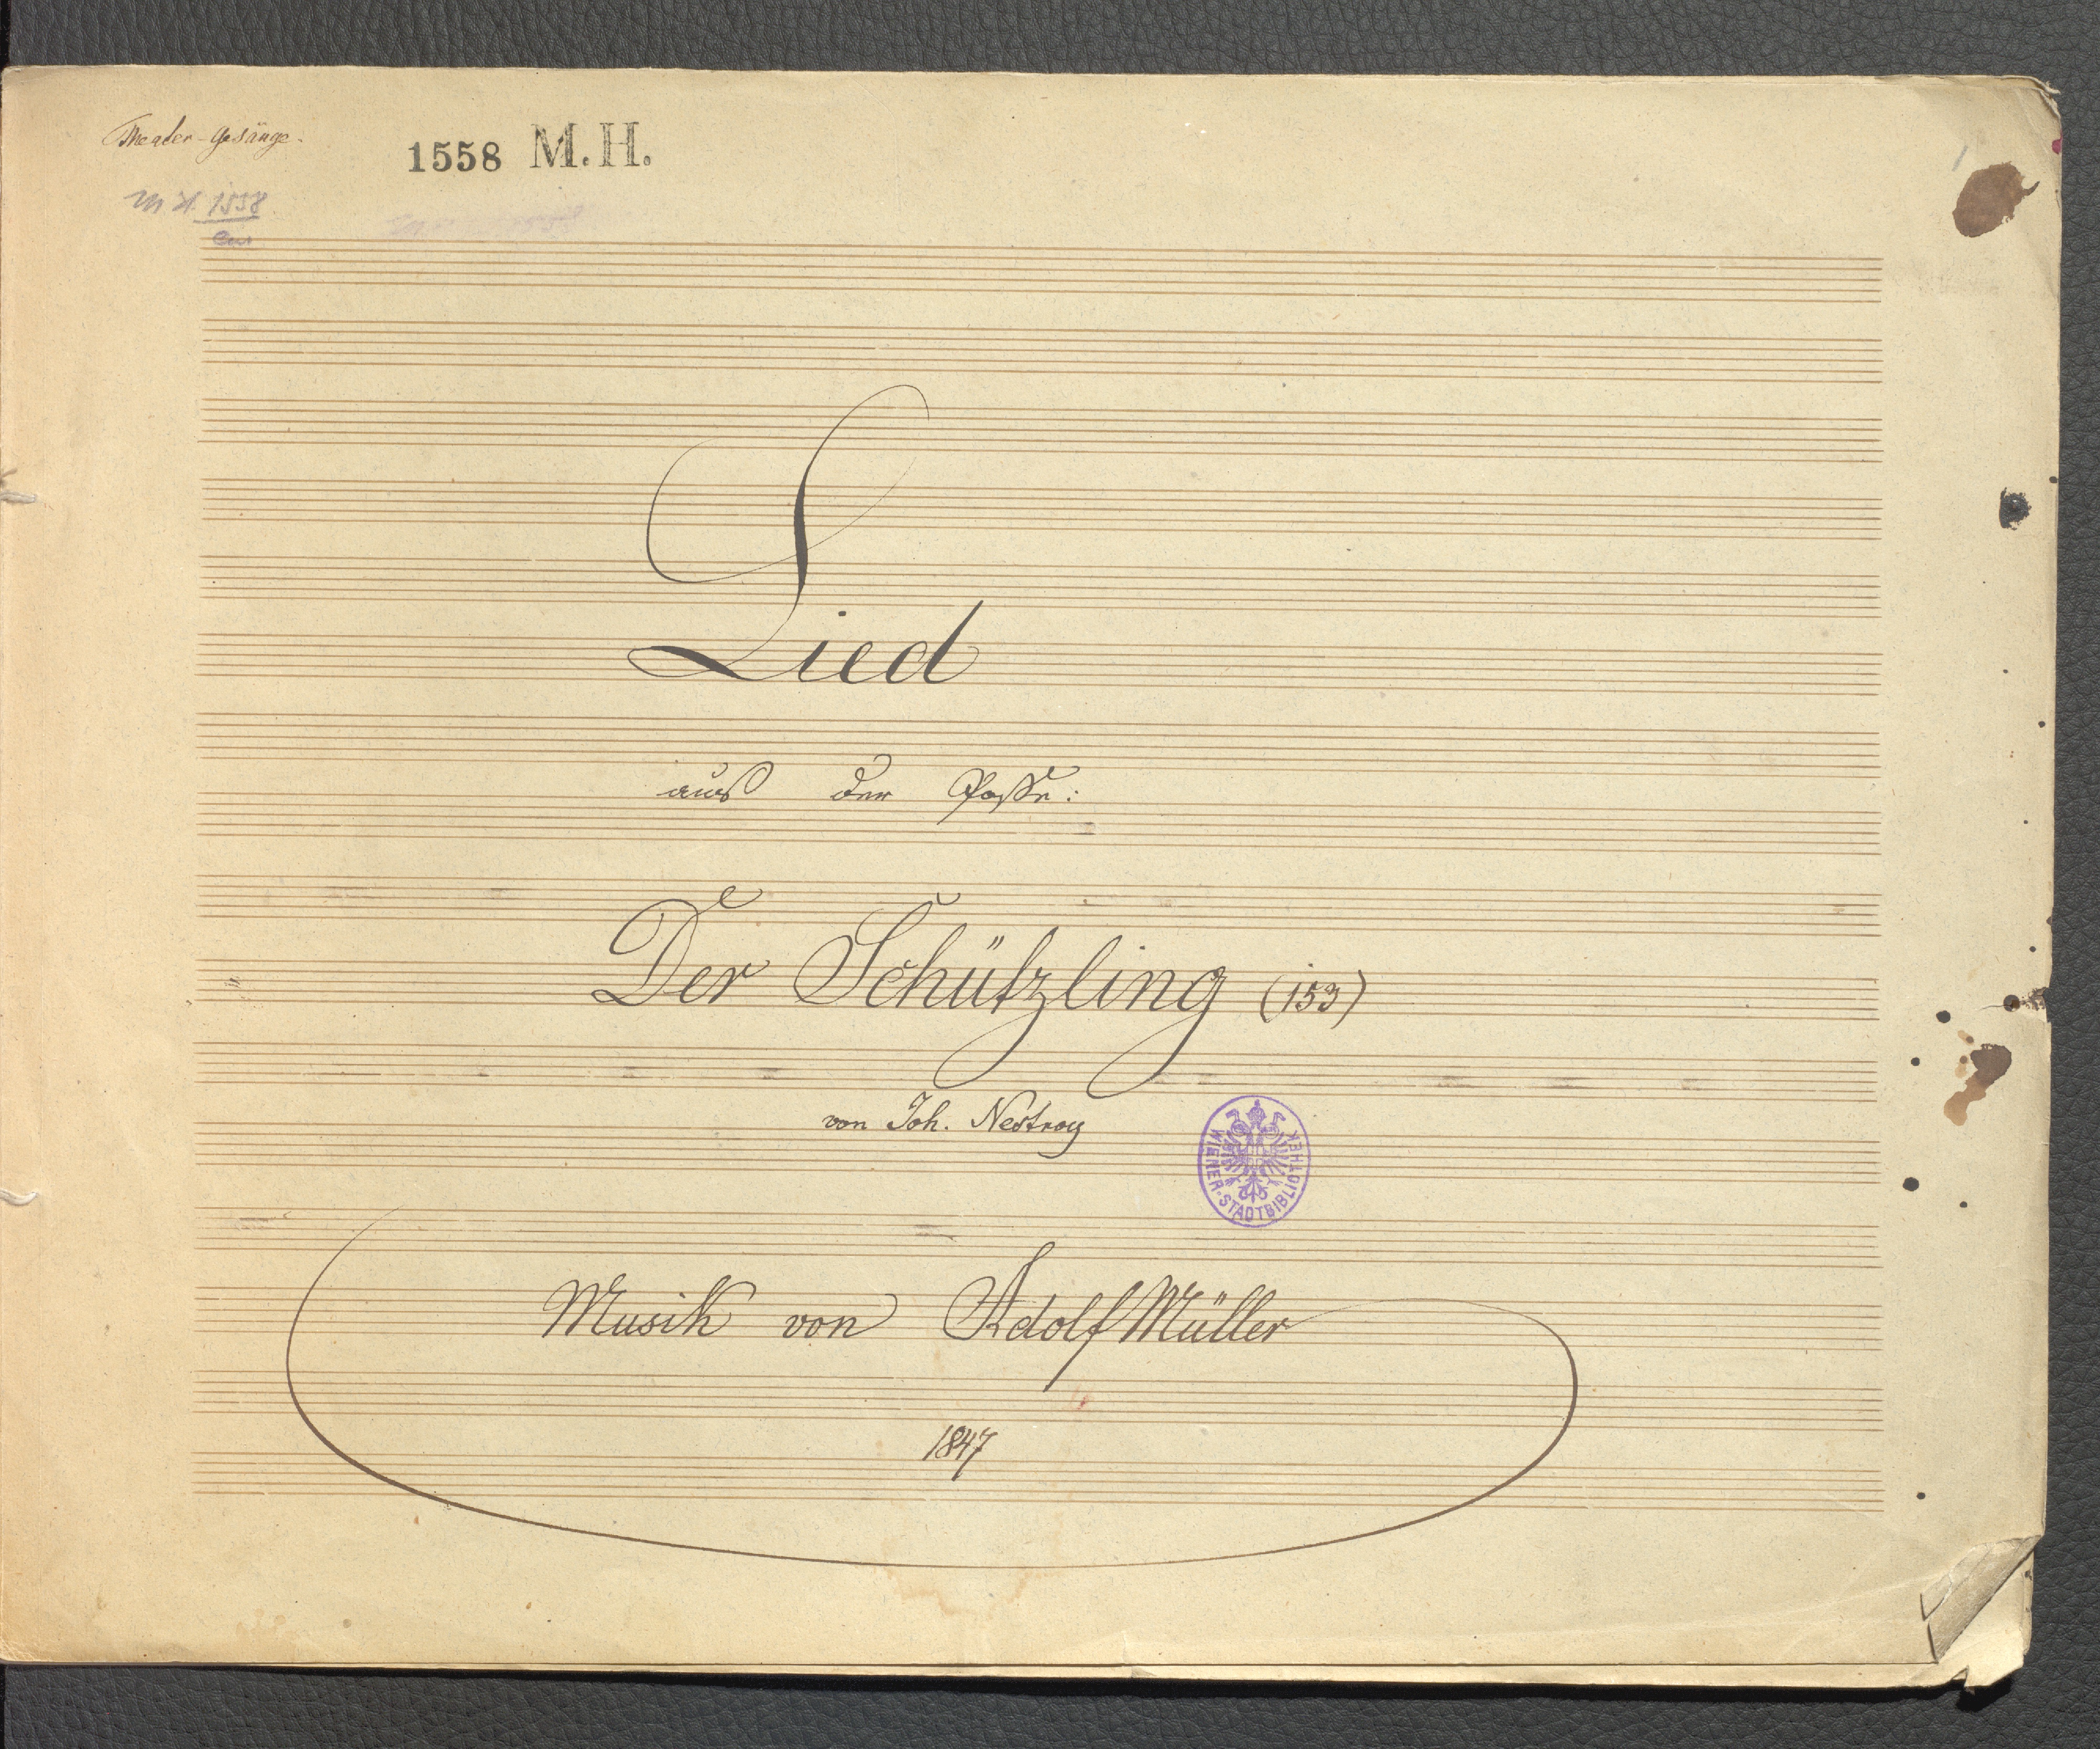 Theater-Gesänge.
1558 M.H.
1558
Lied
aus der Posse:
Der Schützling (153)
von Joh. Nestroy
WIENER-STADTBIBLIOTHEK
Musik von Adolf Müller
1847